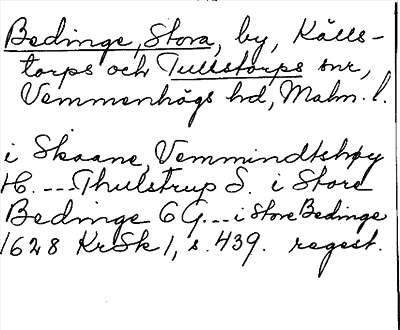 Bedinge, Stora, by, Källs-
torps och Tullstorps snr,
Vemmenhögs hd, Malm. l.
i Skaane, Vemmindtshøy
H. --- Thulstrup S. i Store
Bedinge 6 G --- i Store Bedinge
1628 KrSk 1, s. 439. regest.